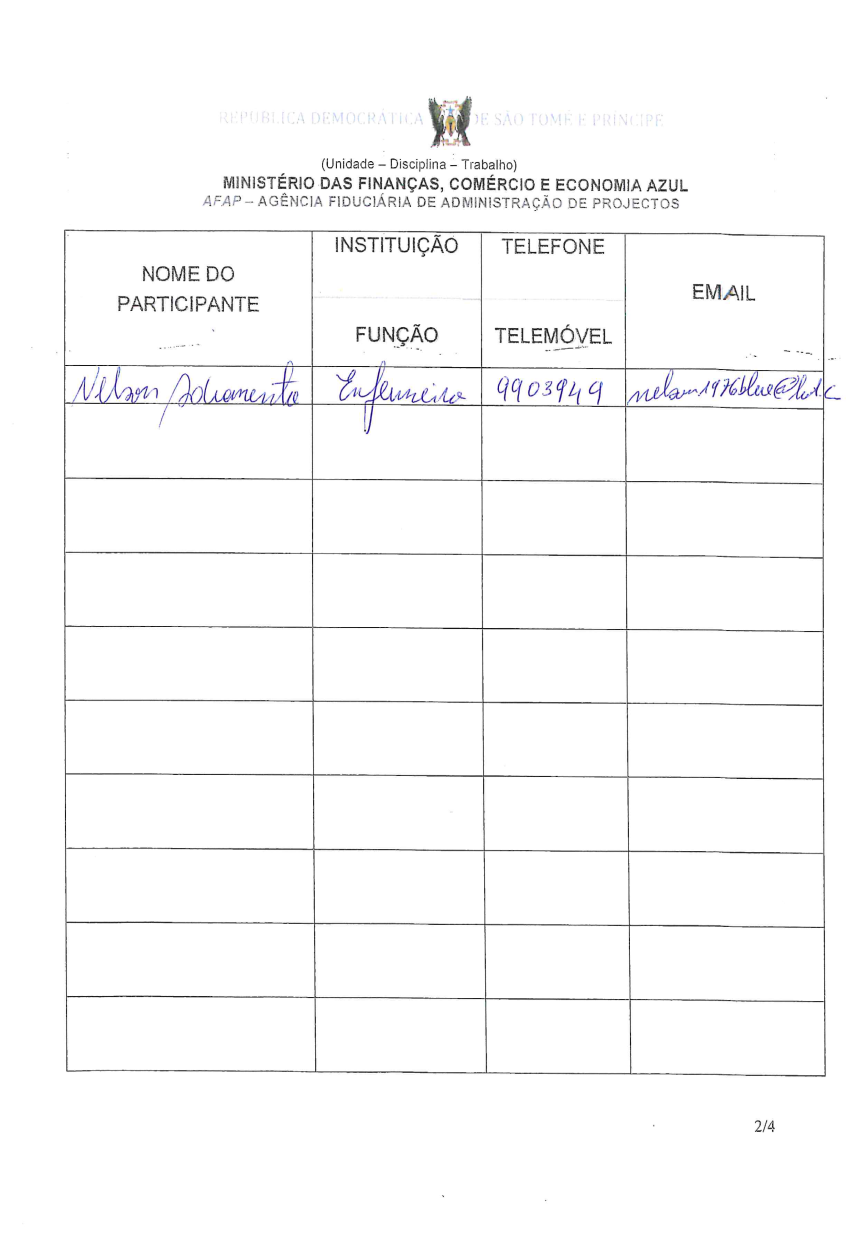 REPÚBLICA DEMOCRÁTICA DE SÃO TOMÉ E PRÍNCIPE
(Unidade – Disciplina – Trabalho)
MINISTÉRIO DAS FINANÇAS, COMÉRCIO E ECONOMIA AZUL
AFAP – AGÊNCIA FIDUCIÁRIA DE ADMINISTRAÇÃO DE PROJECTOS
NOME DO
PARTICIPANTE
INSTITUIÇÃO
FUNÇÃO
TELEFONE
TELEMÓVEL
EMAIL
Nelson Enfermeiro 9903949
2/4